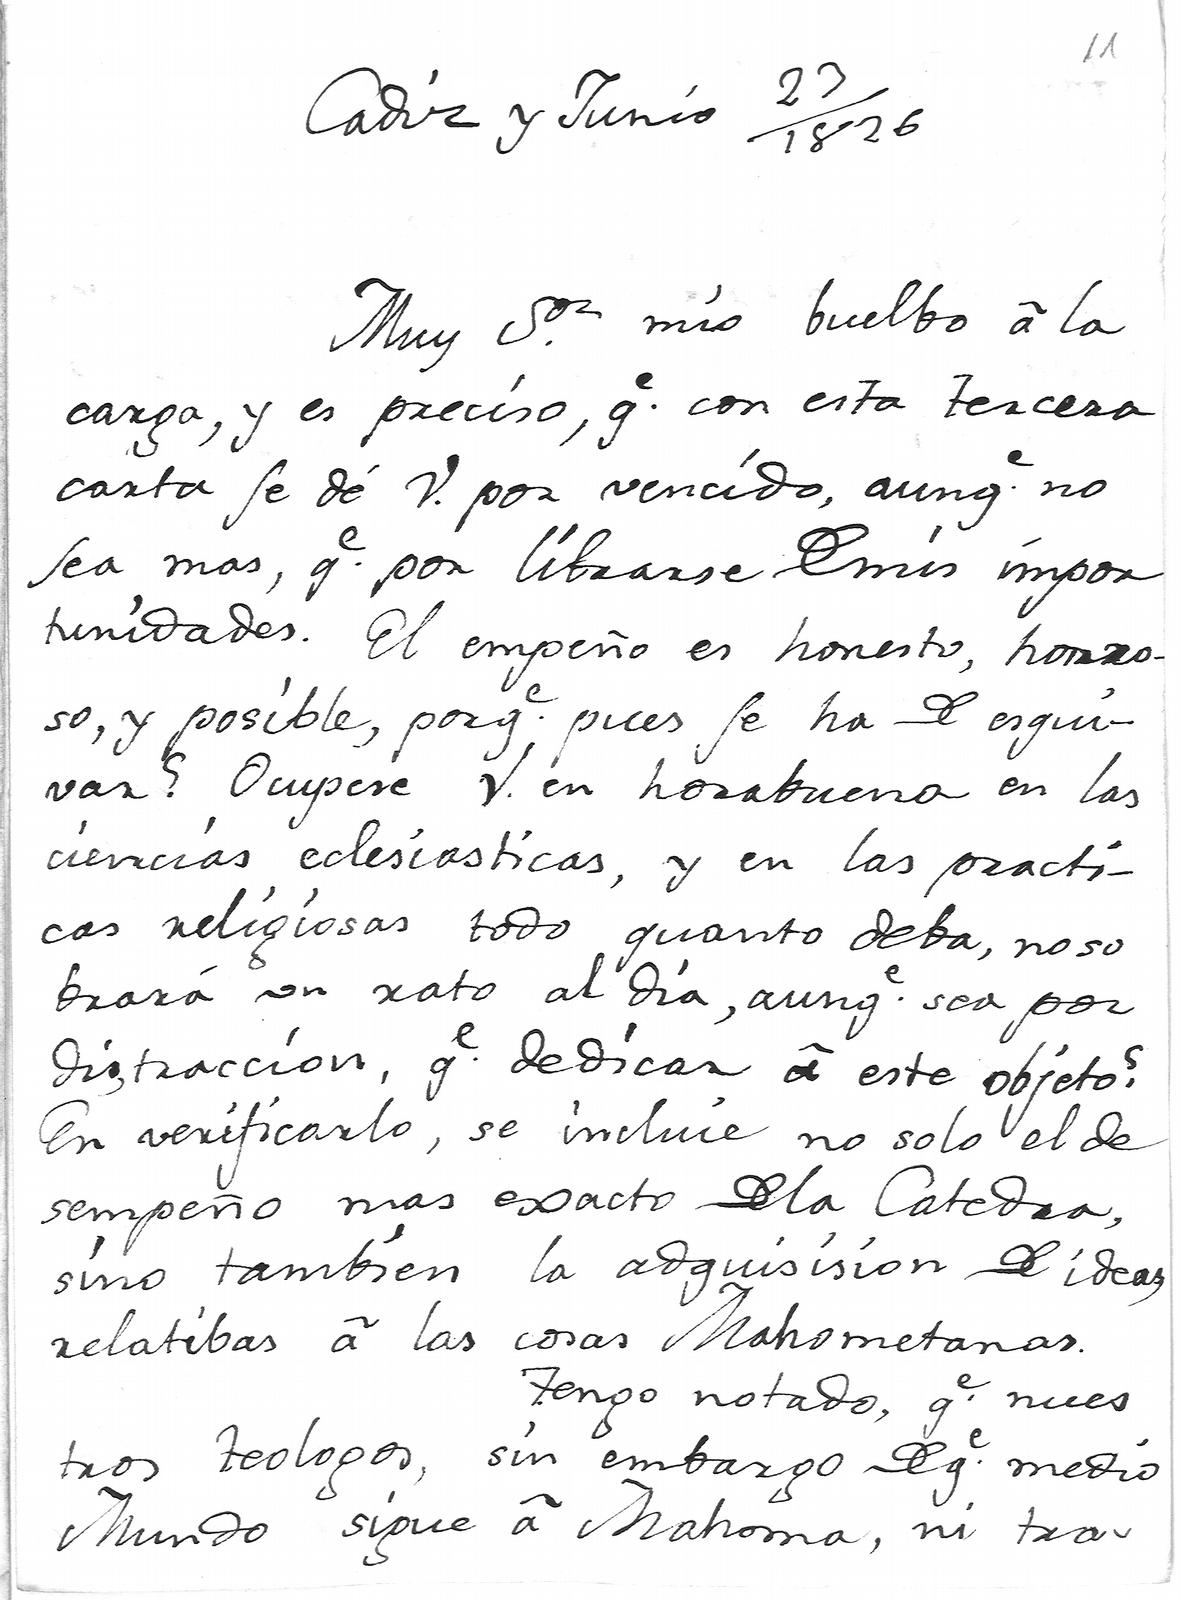 11
Cadiz y Junio 27/1826
Muy Sor. mio buelbo â la
carga, y es preciso, qe. con esta tercera
carta se dé V. por vencido, aunqe. no
sea mas, qe. por librarse De mis impor
tunidades. El empeño es honesto, honro-
so, y posible, porqe. pues se ha De esqui-
var? Ocupese V. en horabuena en las
ciencias eclesiasticas, y en las practi-
cas religiosas todo quanto deba, no so
brará un rato al dia, aunqe. sea por
distraccion, qe. dedicar â este objeto?
En verificarlo, se incluie no solo el de
sempeño mas exacto De la Catedra,
sino tambien la adquisision De ideas
relatibas â las cosas Mahometanas.
Tengo notado, qe. nues
tros Teologos, sin embargo De qe. medio
Mundo sigue â Mahoma, ni tra-